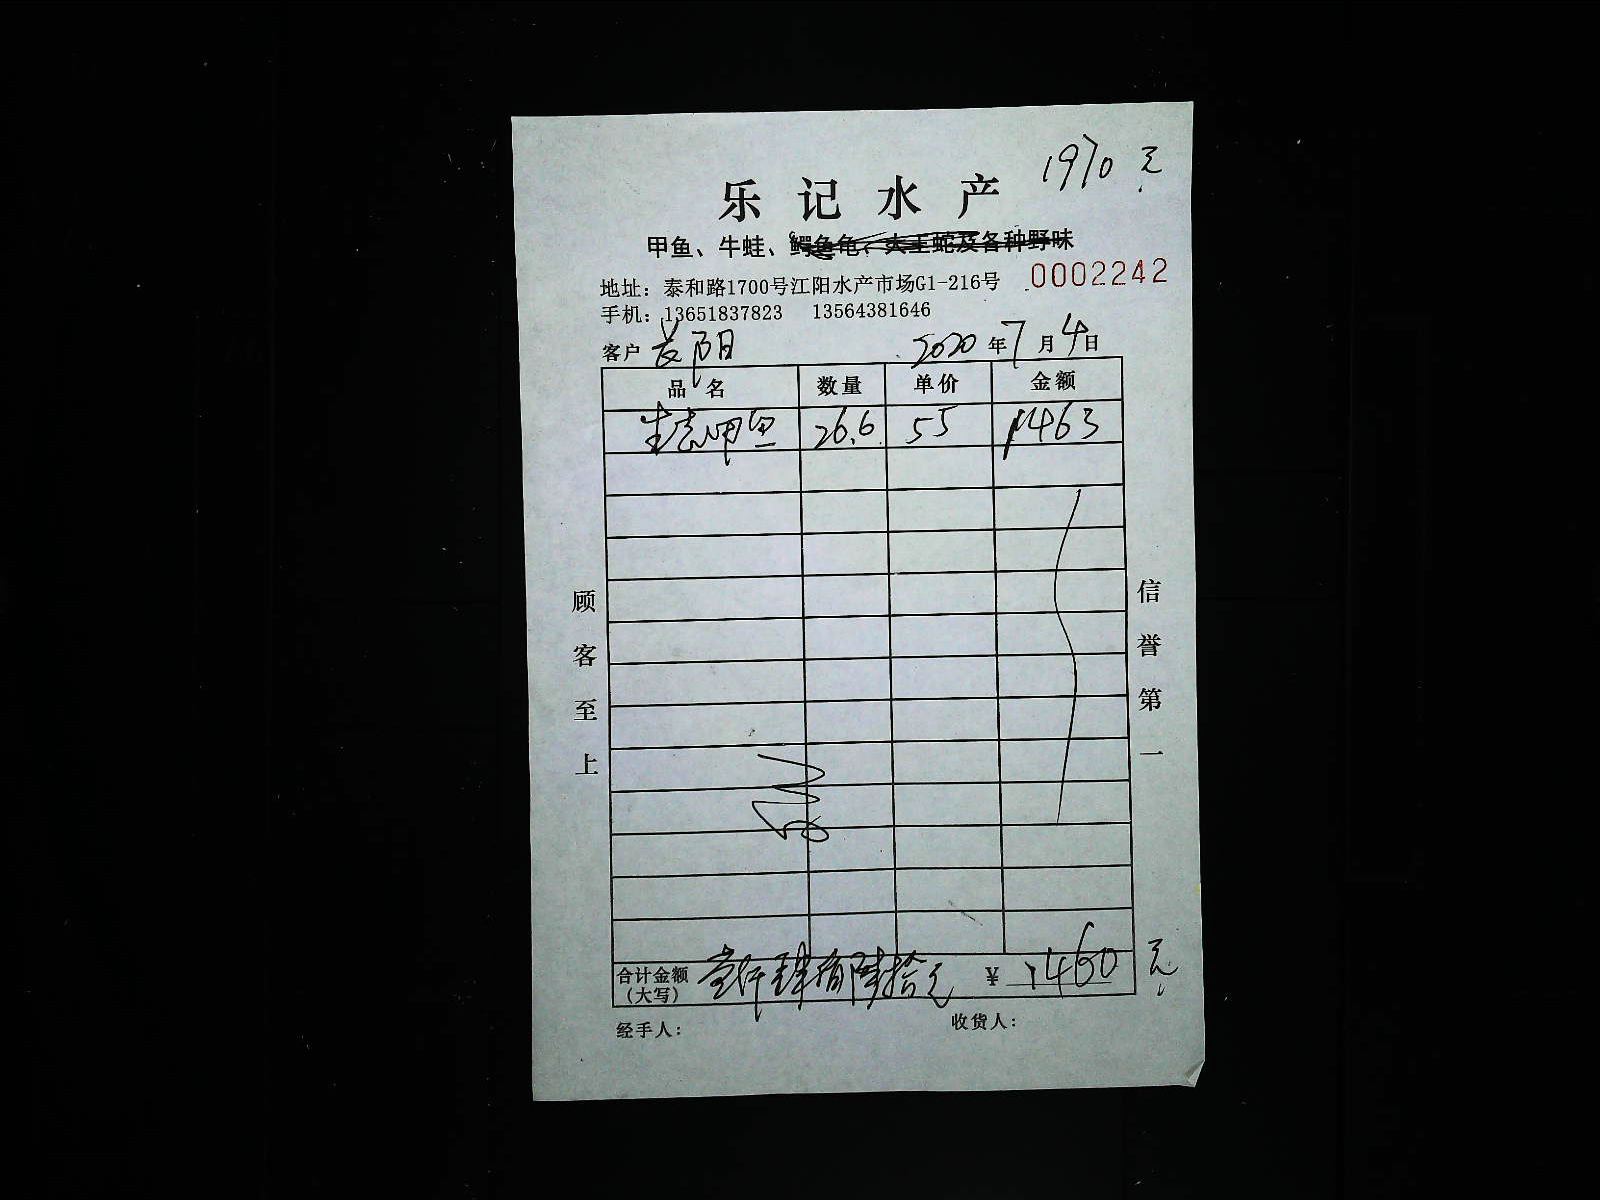 1970元
乐记水产
甲鱼、牛蛙、鳄鱼龟、大王蛇及各种野味
地址：泰和路1700号江阳水产市场G1-216号 0002242
手机：13651837823 13564381646
客户 阳 2020年7月4日
品名 数量 单价 金额
生态甲鱼 26.6 55 1463
顾客至上
信誉第一
合计金额（大写） 壹仟肆佰陆拾元 ¥ 1460元
经手人： 收货人：